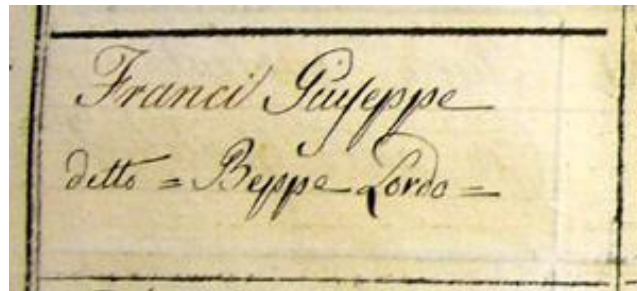 Franci Giuseppe
ditto = Beppe Lordo =